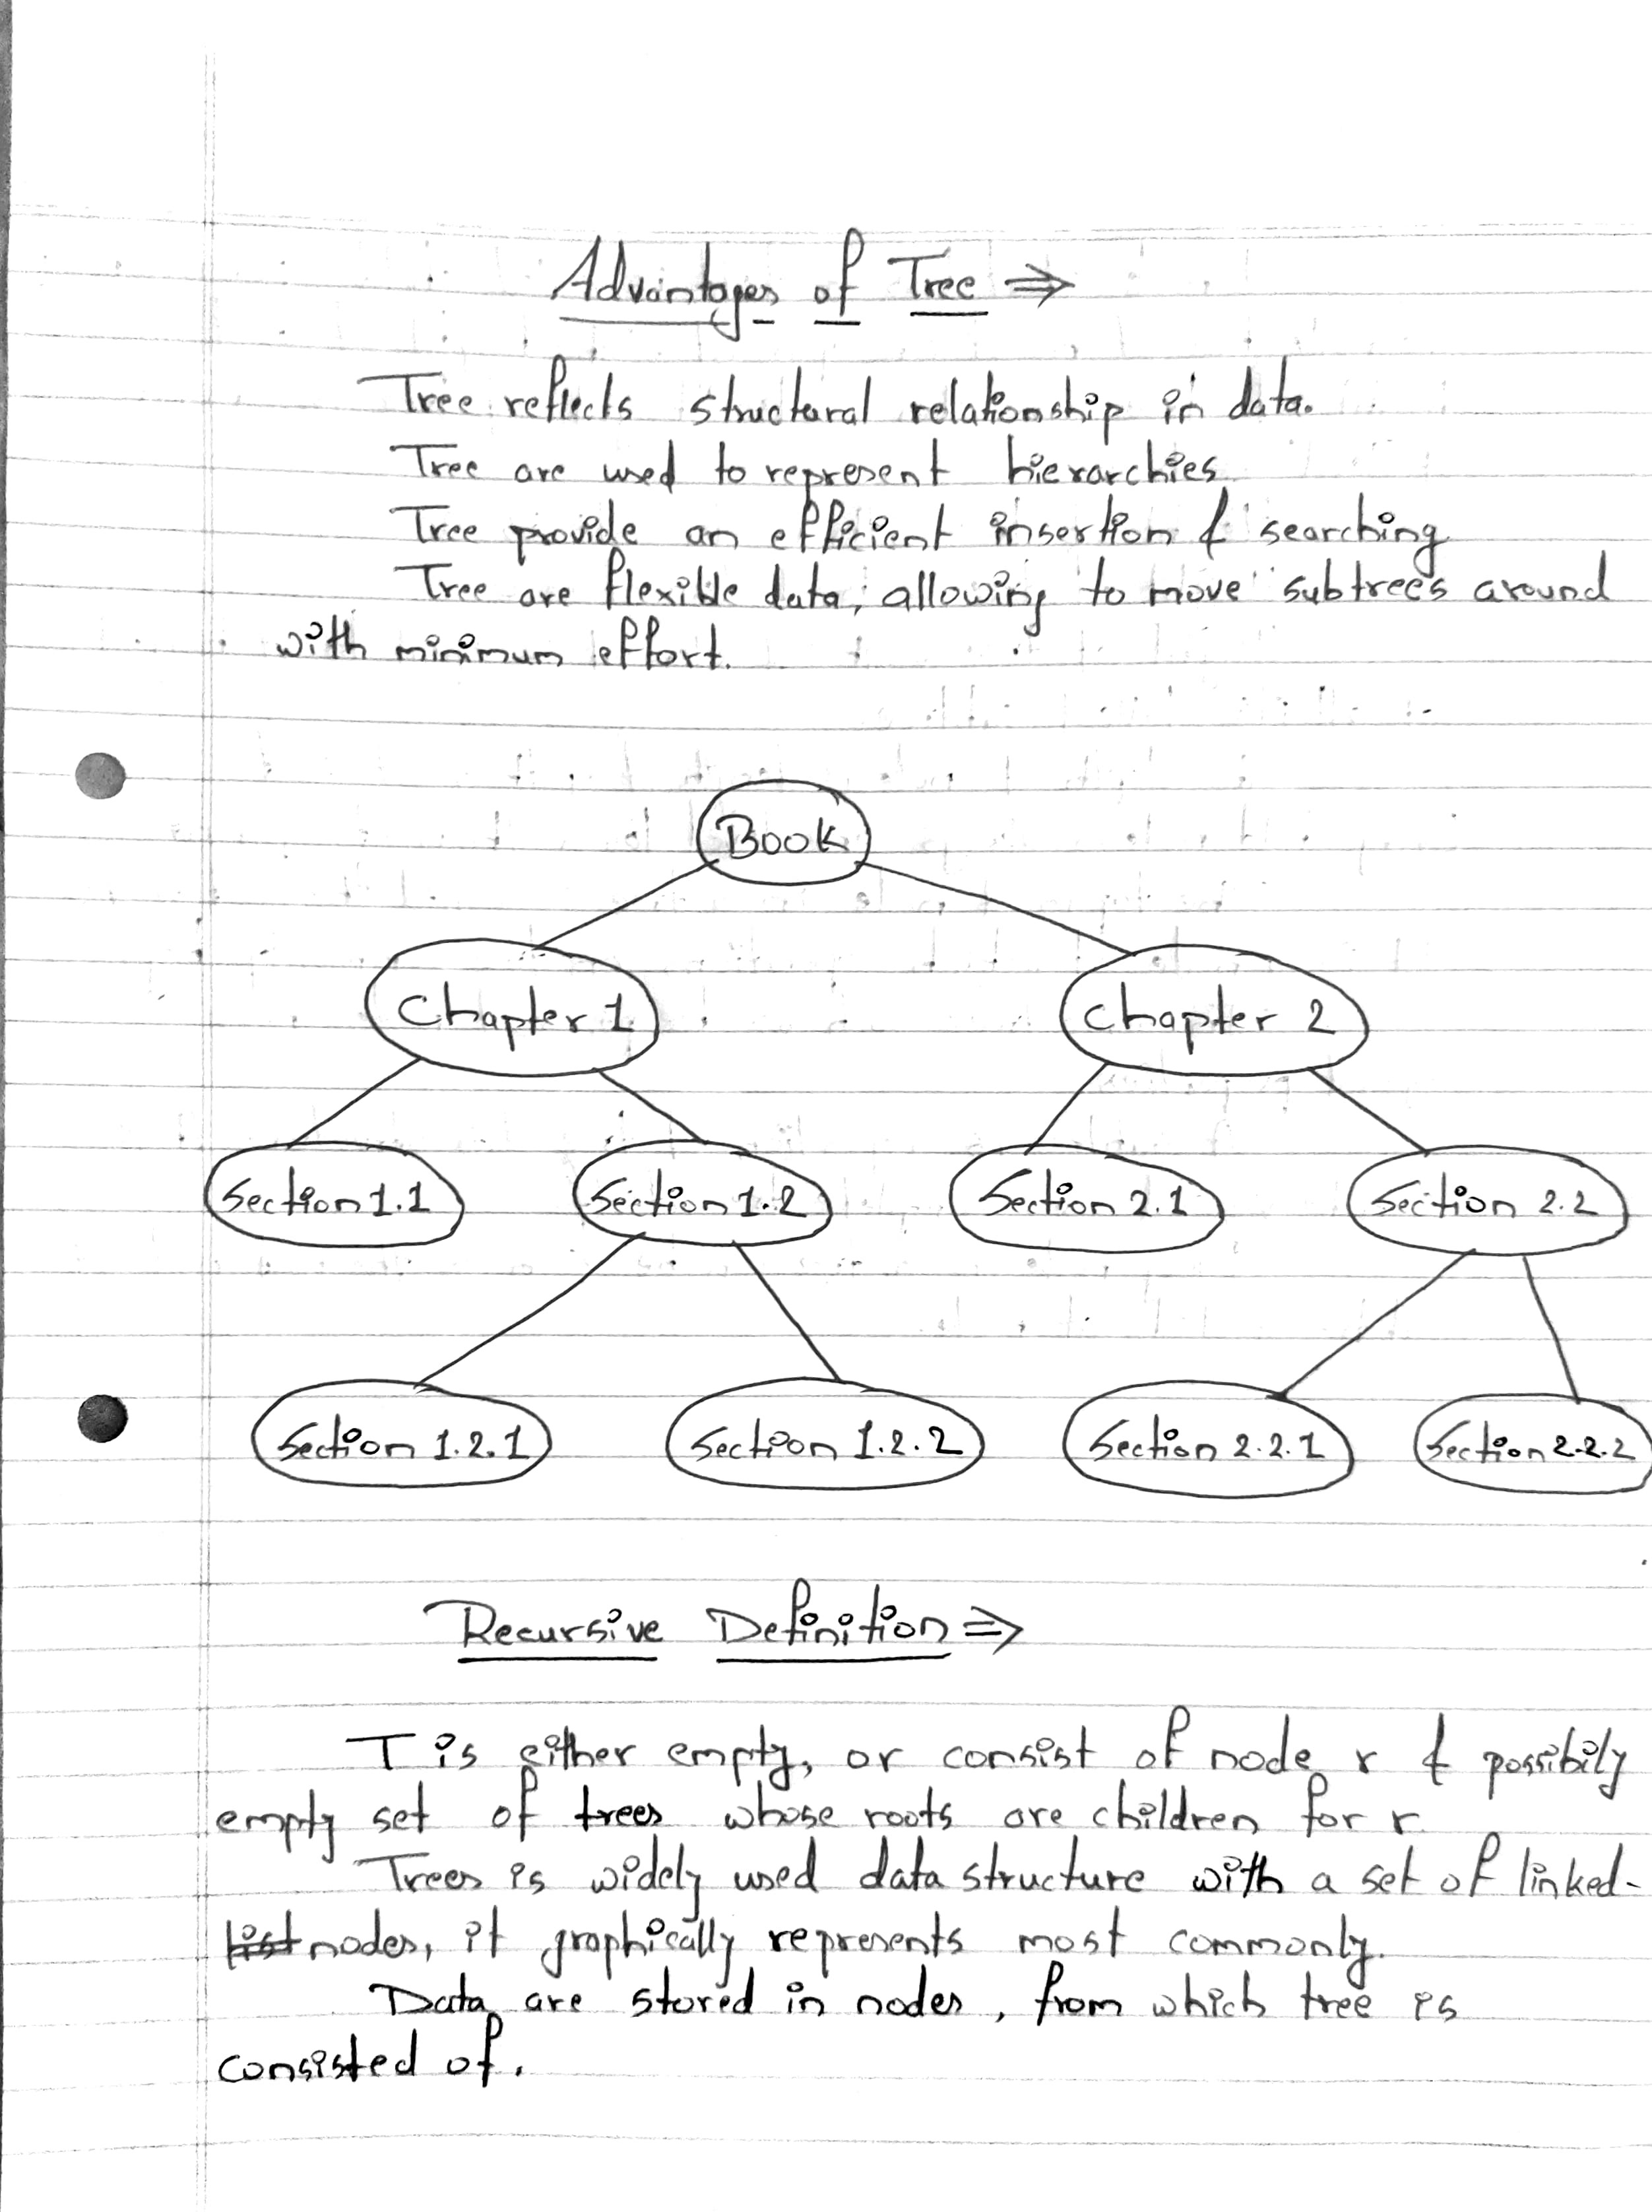 Advantages of Tree ⇒
Tree reflects structural relationship in data.
Tree are used to represent hierarchies
Tree provide an efficient insertion & searching
Tree are flexible data, allowing to move subtrees around
with minimum effort.
Book
Chapter 1 Chapter 2
Section 1.1 Section 1.2 Section 2.1 Section 2.2
Section 1.2.1 Section 1.2.2 Section 2.2.1 Section 2.2.2
Recursive Definition ⇒
T is either empty, or consist of node r & possibily
empty set of trees whose roots are children for r
Trees is widely used data structure with a set of linked-
list nodes, it graphically represents most commonly.
Data are stored in nodes, from which tree is
consisted of.